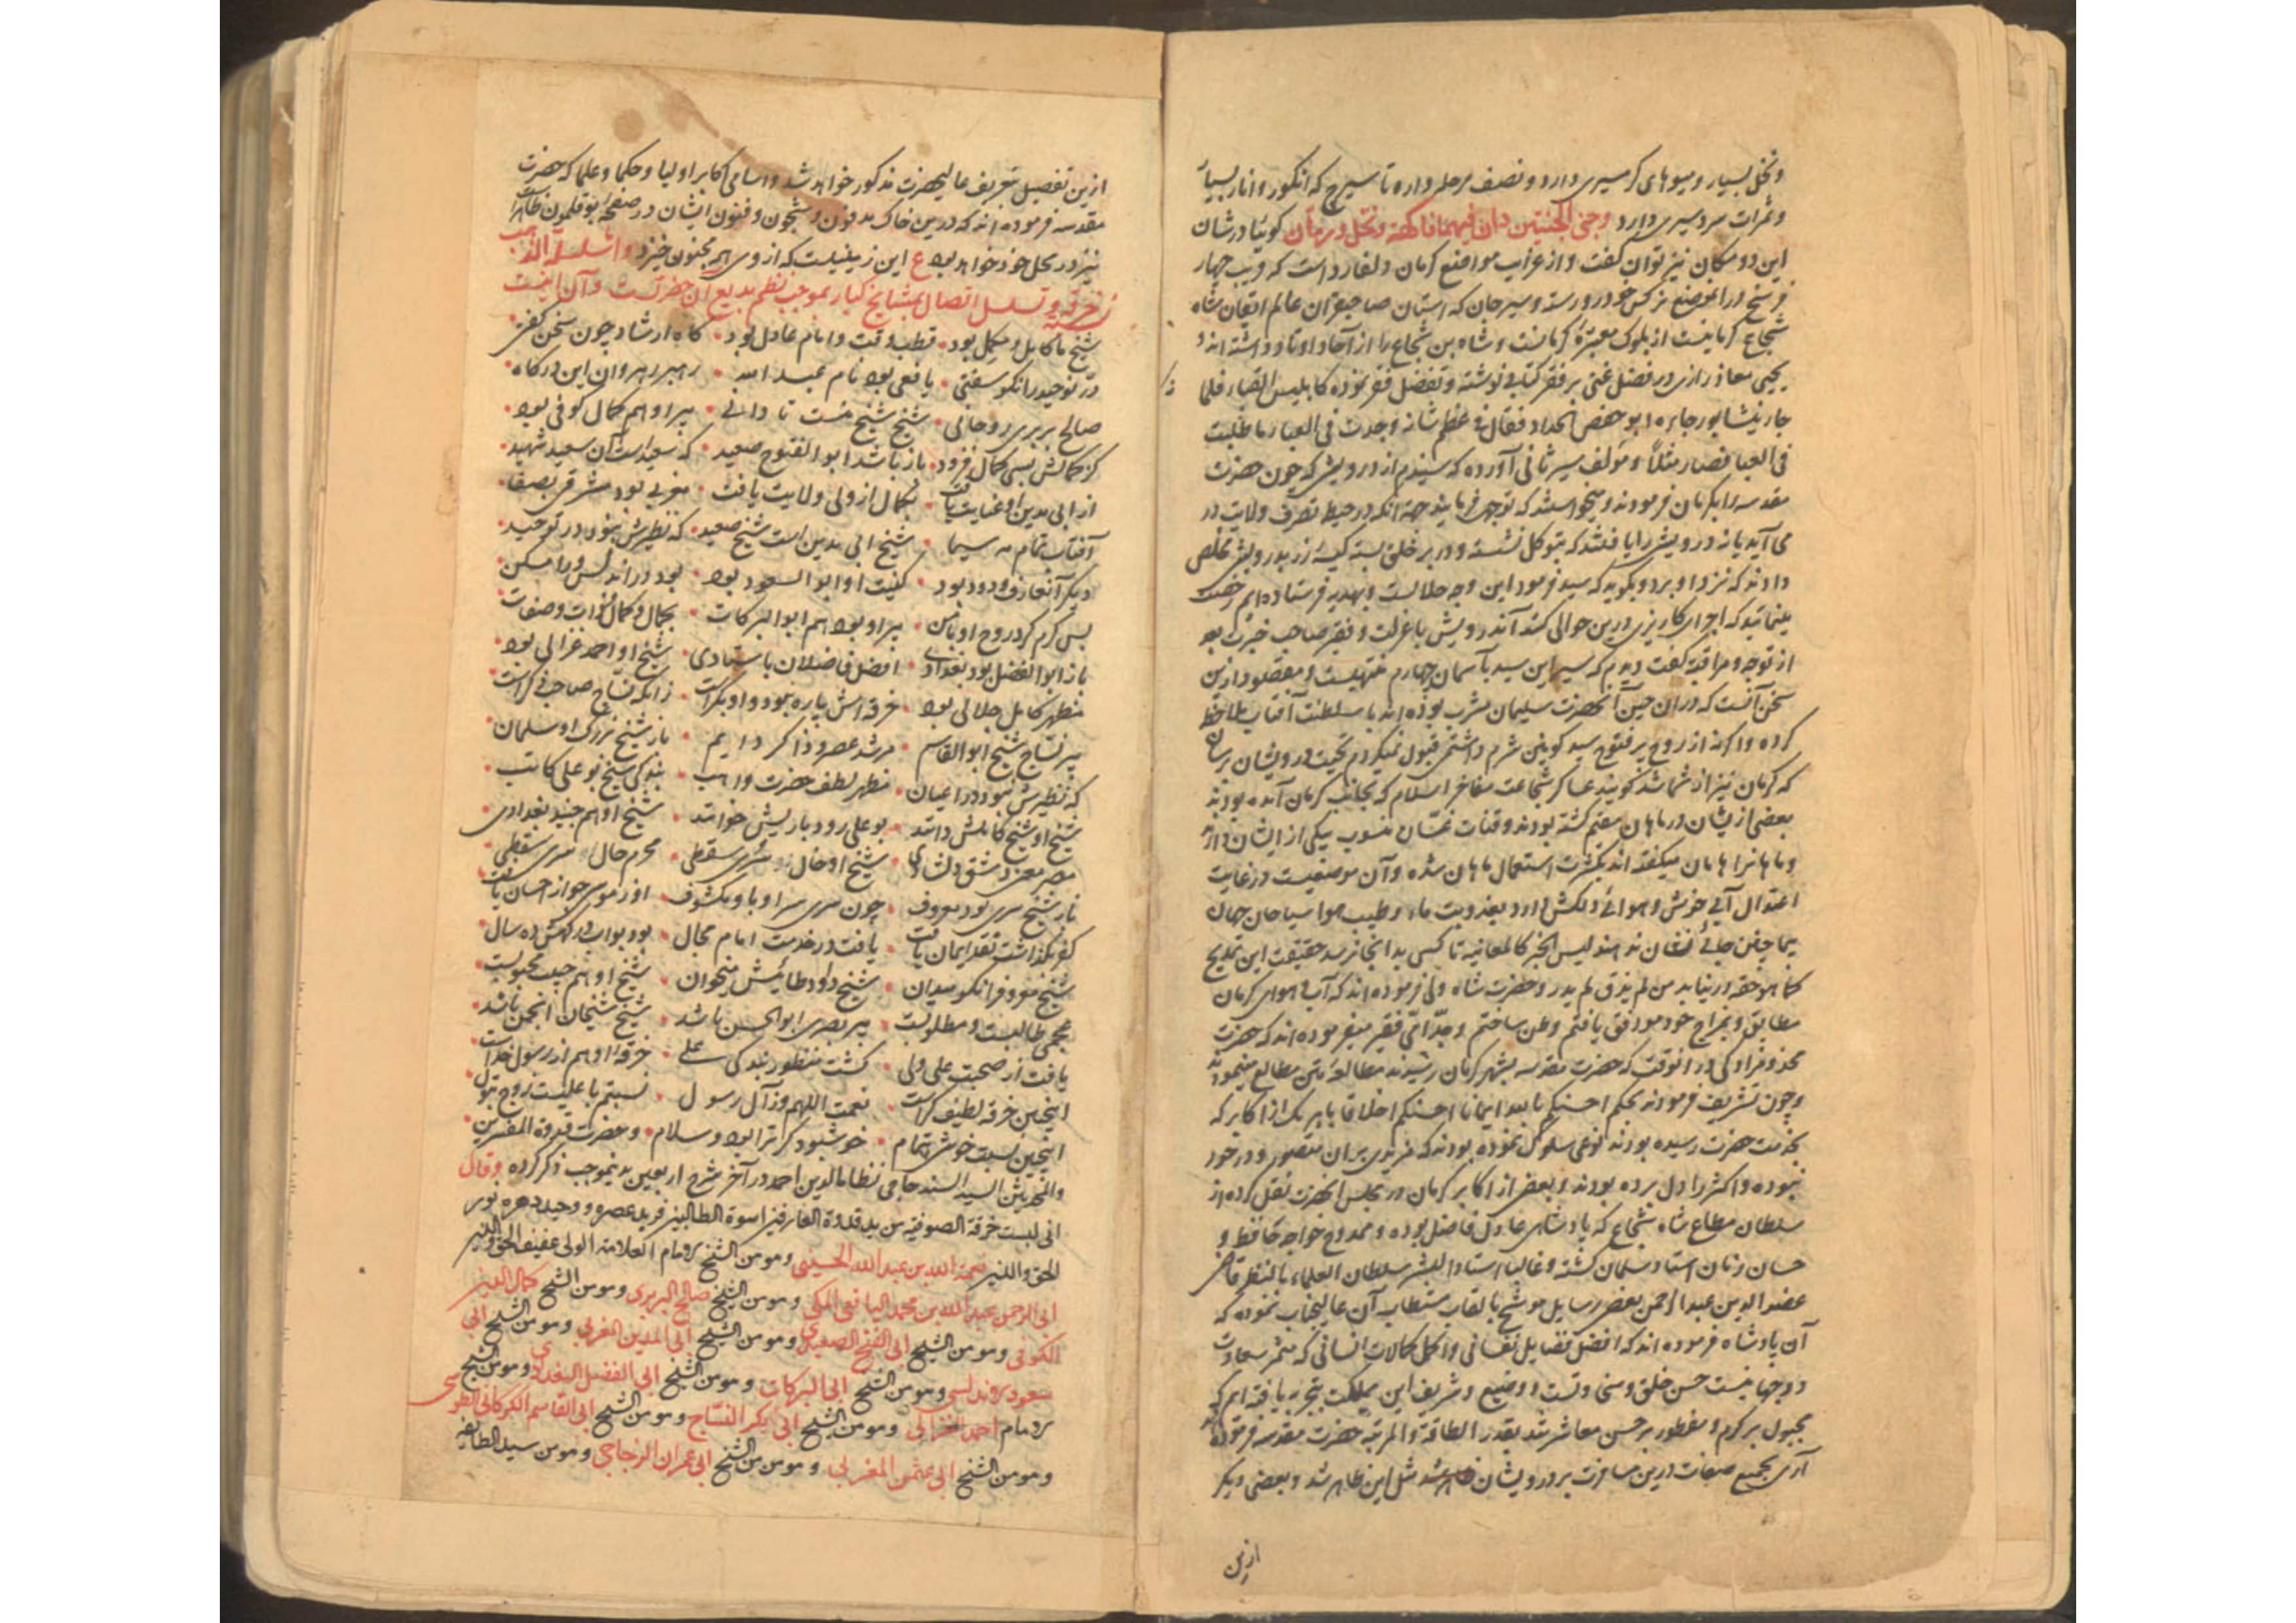 ونخل بسیار و میوهای گرمسیری دارد و نصف مرحله دارد تا سیرج که انگور و انار بسیار
و ثمرات سردسیری دارد وجنی الجنتین دان فیهما فاکهة ونخل ورمان گوئیا در شان
این دو مکان نیز توان گفت و از غرایب مواضع کرمان و لغار است که قریب چهار
فرسخ در آن موضع نرگس خودرو رسته و سیرجان که استان صاحبقران عالم ایقان شاه
شجاع کرمانیست از بلوک معتبره کرمانست و شاه بن شجاع را از آحاد اوتاد داشته اند و
یحیی معاذ رازی در فضل غنی بر فقر کتابی نوشته و تفضل فقر نموده کابلیس القباء فلما
جاء نیشابور جاءه ابو حفص الحداد فقال فی عظم شانه وجدت فی العباء ما طلبت
فی القبا فصار مثلا و مؤلف سیر ثانی آورده که شنیدم از درویشی که چون حضرت
مقدسه را بکرمان فرمودند و میخواستند که توجه فرمایند جهة آنکه در حیطه تصرف ولایت در
می آید یا نه درویشی را یافتند که بتوکل نشسته و در بر خلق بسته کیسه زر بدرویش مخلص
دادند که نزد او برد و بگوید که سید فرمود این وجه حلالست و بهدیه فرستاده ایم رخصت
مینمائید که اجرای کاریزی درین حوالی کند آن درویش با عزلت و فقر صاحب خبرت بود
از توجه و مراقبه گفت دیدم که سیر این سید بآسمان چهارم منتهیست و مقصود ازین
سخن آنست که در آن حین آنحضرت سلیمان مشرب بوده اند با سلطنت آفتاب ملاحظه
کرده و اگر نه از روح پر فتوح سید کونین شرم داشتم قبول نمیکردم تحیت درویشان رسان
که کرمان نیز از شما شد گویند عساکر شجاعت مفاخر اسلام که بجانب کرمان آمده بودند
بعضی ازیشان در ماهان مقیم گشته بودند و قنات غسان منسوب بیکی از ایشان دارند
و ماهانرا هامان میگفته اند بکثرت استعمال ماهان شده و آن موضعیست در غایت
اعتدال آبی خوش و هوائی دلکش دارد بعذوبت ماء و طیب هوا سیاحان جهان
بما چنین جائی نشان نداده اند لیس الخبر کالمعاینه تا کسی بدانجا نرسد حقیقت این تلمیح
کما هو حقه در نیابد من لم یذق لم یدر و حضرت شاه ولی فرموده اند که آب و هوای کرمان
مطابق و بمزاج خود موافق یافتم و وطن ساختم و جد امی فقیر میفرموده اند که حضرت
مخدوم زادگی در آنوقت که حضرت مقدسه بشهر کرمان رسیدند مطالعه متن مطالع مینمودند
و چون تشریف فرمودند بحکم احسنکم بالله ایمانا احسنکم اخلاقا با هر یک از اکابر که
بخدمت حضرت رسیده بودند نوعی سلوک نموده بودند که مزیدی بر آن متصور و در خور
نبوده و اکثر را دل برده بودند و بعضی از اکابر کرمان در مجلس آنحضرت نقل کرده از
سلطان مطاع شاه شجاع که پادشاهی عادل فاضل بوده و ممدوح خواجه حافظ و
حسان زمان استاد سلمان گشته و غالبا استاد البشر سلطان العلماء بالنظر قاضی
عضد الدین عبدالرحمن بعضی رسایل موشح بالقاب مستطاب آن عالیجناب نموده که
آن پادشاه فرموده اند که افضل فضایل نفسانی و اکمل کمالات انسانی که مثمر سعادت
دوجهانیست حسن خلق و سخی وتست و وضیع و شریف این مملکت بتجربه یافته ام که
مجبول بر کرم و مفطور بر حسن معاشرتند بقدر الطاقة والمرتبة حضرت مقدسه فرموده اند
آری بجمیع صفات درین مسافرت بر درویشان ظاهر شد مثل این ظاهر شد و بعضی دیگر
ازین
ازین تفصیل بتعریف عالیحضرت مذکور خواهد شد و اسامی اکابر اولیا و حکما و علما که حضرت
مقدسه فرموده اند که درین خاک مدفون و شجون و فنون ایشان در صفحه بوقلمون ظاهر است
نیز در محل خود خواهد بود ع این زمینیست که از وی همه مجنون خیزد و اما سلسلة الذهب
خرقه و تسلسل اتصال بمشایخ کبار بموجب نظم بدیع آن حضرتست و آن اینست
شیخ ما کامل و مکمل بود • قطب وقت و امام عادل بود • گاه ارشاد چون سخن گفتی
در توحید را نکو سفتی • یافعی بود نام عبد الله • رهبر رهروان این درگاه •
صالح بربری روحانی • شیخ شیخ منست تا دانی • پیر او هم کمال کوفی بود •
کز کمالش بسی کمال فزود • باز باشد ابو الفتوح صعید • که سعید است آن سعید شهید •
از ابی مدین او عنایت یافت • بکمال از ولی ولایت یافت • مغربی بود مشرقی بصفا •
آفتاب تمام مه سیما • شیخ ابی مدین است شیخ صعید • که نظیرش نبود در توحید •
دیگر آن عارف ودود بود • کنیت او ابو السعود بود • بود در اندلس ورا مسکن
بس کرم کرد روح او با من • پیر او بود هم ابو البرکات • بجمال و کمال و ذات و صفات
باز ابو الفضل بود بغدادی • افضل فاضلان باستادی • شیخ او احمد غزالی بود
مظهر کامل جلالی بود • خرقه اش پاره بود و او بکر است • زانکه نساج صاحب ذکر است
پیر نساج شیخ ابو القاسم • مرشد عصر و ذاکر دایم • باز شیخ بزرگ او عثمان
که نظیرش نبود در اعیان • مظهر لطف حضرت واهب • بندگی شیخ بو علی کاتب •
شیخ او شیخ کاملش دانند • بو علی رودباریش خوانند • شیخ او هم جنید بغدادی
مصر معنی دمشق دلشادی • شیخ او خال او سری سقطی • محرم حال او سری سقطی
باز شیخ سری بود معروف • چون سری سر او باو مکشوف • او ز موسی جواز احسان یافت
کفر بگذاشت نقد ایمان یافت • یافت در خدمت امام مجال • بود بواب درگهش ده سال
شیخ معروف را نکو میدان • شیخ داود طائیش میخوان • شیخ او هم حبیب محبوبست
عجمی طالبست و مطلوبست • پیر بصری ابو الحسن باشد • شیخ شیخان انجمن باشد
یافت او صحبت علی ولی • گشت منظور بندگی علی • خرقه او هم از رسول خداست
اینچنین خرقه لطیف کراست • نعمت اللهم و ز آل رسول • نسبتم با علیست زوج بتول
اینچنین نسبت خوش بتمام • خوشبود گر ترا بود و سلام • و حضرت قدوة المفسرین
والمحدثین السید السند حامی نظاما الدین احمد در آخر شرح اربعین بدینموجب ذکر کرده وقال
انی لبست خرقة الصوفیه من ید قدوة العارفین اسوة الطالبین فرید عصره و وحید دهره نور
الحق والدین نعمة الله بن عبد الله الحسینی وهو من الشیخ الامام العلامة الولی عفیف الحق والدین
ابی الرحمن عبد الله بن محمد الیافعی المکی وهو من الشیخ صالح البربری وهو من الشیخ کمال الدین
الکوفی وهو من الشیخ ابی الفتح الصعیدی وهو من الشیخ ابی المدین المغربی وهو من الشیخ ابی
سعود الاندلسی وهو من الشیخ ابی البرکات وهو من الشیخ ابی الفضل البغدادی وهو من الشیخ
الامام احمد الغزالی وهو من الشیخ ابی بکر النساج وهو من الشیخ ابی القاسم الکرکانی الطوسی
وهو من الشیخ ابی عثمن المغربی وهو من الشیخ ابی عمران الزجاجی وهو من سید الطایفه